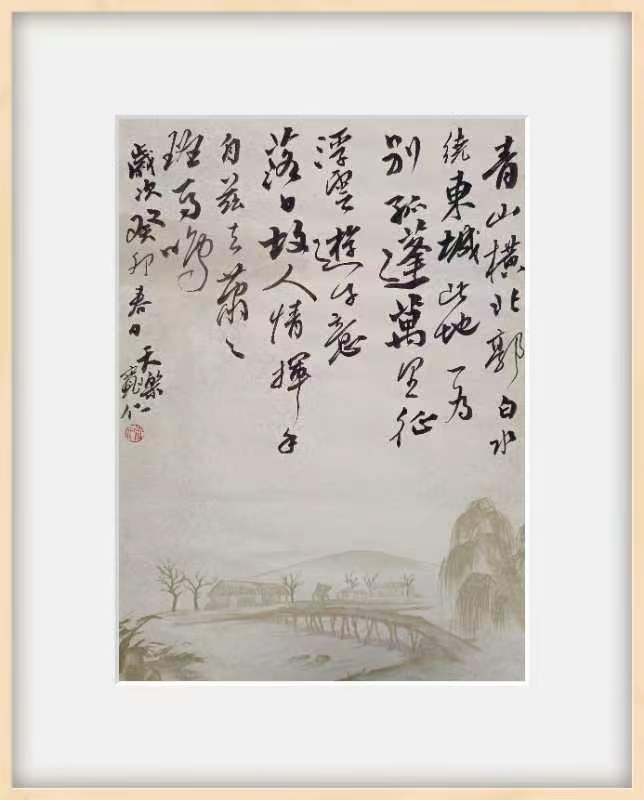 青山橫北郭白水
繞東城此地一為
別孤蓬萬里征
浮雲遊子意
落日故人情揮手
自茲去蕭々
班馬鳴
歲次癸卯春日
天樂